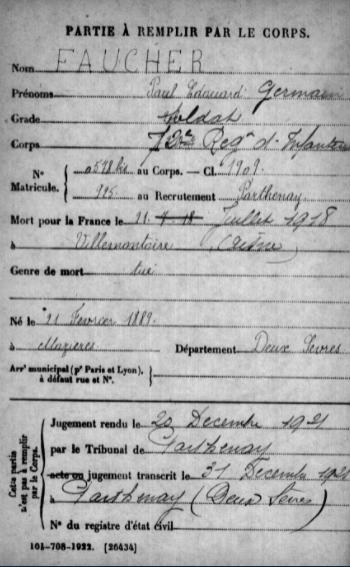 PARTIE À REMPLIR PAR LE CORPS.
Nom FAUCHER
Prénoms Paul Edouard Germain
Grade Soldat
Corps 72e Regt d'Infanterie
N° Matricule. { au Corps. — Cl. 1909.
995 au Recrutement Parthenay
Mort pour la France le 21 7 18 Juillet 1918
à Villemontoire (Aisne)
Genre de mort tué
Né le 21 Fevrier 1889.
à Mazières Département Deux Sevres
Arrt municipal (pr Paris et Lyon), à défaut rue et N°. {
Cette partie n'est pas à remplir par le Corps.
Jugement rendu le 20 Decembre 1921
par le Tribunal de Parthenay
acte ou jugement transcrit le 31 Decembre 1921
à Parthenay (Deux Sevres)
N° du registre d'état civil
101-708-1922. [26434]